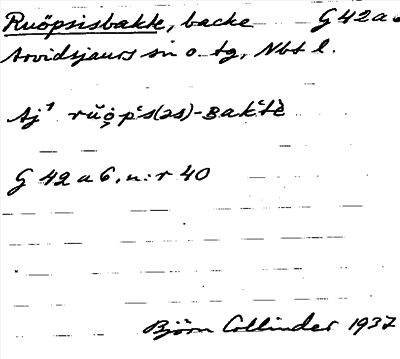 Ruöpsisbakk, backe G 42 a 6
Arvidsjaurs sn o. tg, Nbt l.
Aj¹ rŭo̭pˈs(əs)-Bakˈtè
G 42 a 6, n:r 40
Björn Collinder 1937